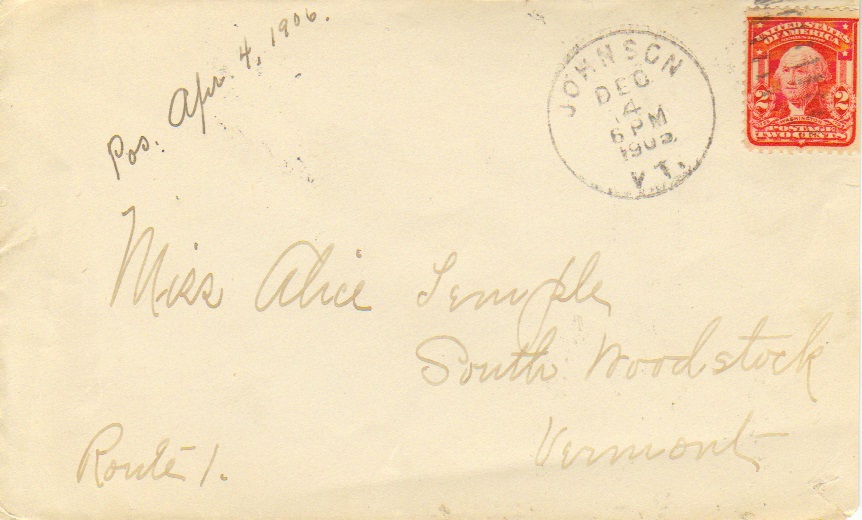 Pos. Apr. 4, 1906.
JOHNSON
DEC
4
6 PM
VT.
UNITED STATES
OF AMERICA
2 2
WASHINGTON
POSTAGE
TWO CENTS
Miss Alice Temple
South Woodstock
Vermont
Route 1.